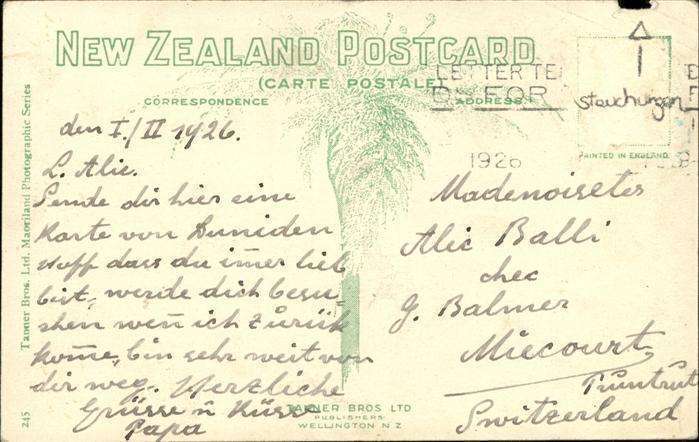 NEW ZEALAND POSTCARD
(CARTE POSTALE)
CORRESPONDENCE
ADDRESS.
LETTER TE
DS FOR
1926
Steuchungen
PRINTED IN ENGLAND.
den I./II 1926.
L. Alie.
Sende dir hier eine
Karte von Duniden
Hoff dass du im̅er lieb
bist, werde dich besu-
chen wen̅ ich zurük
kom̅e, bin sehr weit von
dir weg. Herzliche
Grüsse u̅ Küsse
Papa
Madenoiseles
Alie Balli
chec
G. Balmer
Miecourt
Pruntrut
Switzerland
TANNER BROS LTD
PUBLISHERS
WELLINGTON N.Z
Tanner Bros. Ltd. Maoriland Photographic Series
245